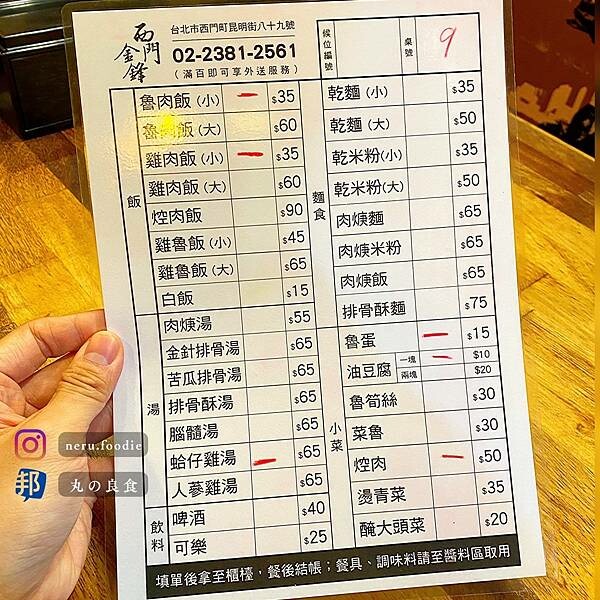 西門
金鋒
台北市西門町昆明街八十九號
02-2381-2561
(滿百即可享外送服務)
候位編號
桌號
9
飯
魯肉飯(小) $35
魯肉飯(大) $60
雞肉飯(小) $35
雞肉飯(大) $60
焢肉飯 $90
雞魯飯(小) $45
雞魯飯(大) $65
白飯 $15
湯
肉羹湯 $55
金針排骨湯 $65
苦瓜排骨湯 $65
排骨酥湯 $65
腦髓湯 $65
蛤仔雞湯 $65
人蔘雞湯 $65
飲料
啤酒 $40
可樂 $25
麵食
乾麵(小) $35
乾麵(大) $50
乾米粉(小) $35
乾米粉(大) $50
肉羹麵 $65
肉羹米粉 $65
肉羹飯 $65
排骨酥麵 $75
小菜
魯蛋 $15
油豆腐 一塊 $10
兩塊 $20
魯筍絲 $30
菜魯 $30
焢肉 $50
燙青菜 $35
醃大頭菜 $20
填單後拿至櫃檯，餐後結帳；餐具、調味料請至醬料區取用
neru.foodie
邦 丸の良食